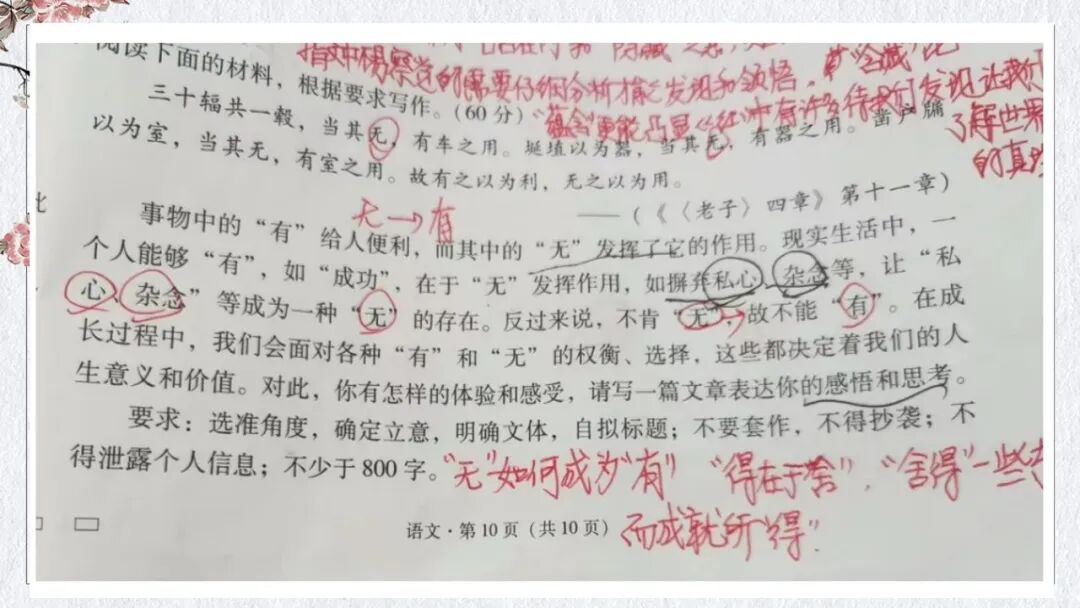 阅读下面的材料，根据要求写作。（60分）
指文中杨察觉的需要仔细分析才能发现和领悟，
"蕴含"更能凸显
待我们发现，让我们
了解世界
的真
三十辐共一毂，当其无，有车之用。埏埴以为器，当其无，有器之用。凿户牖
以为室，当其无，有室之用。故有之以为利，无之以为用。
——（《〈老子〉四章》第十一章）
无→有
事物中的“有”给人便利，而其中的“无”发挥了它的作用。现实生活中，一
个人能够“有”，如“成功”，在于“无”发挥作用，如摒弃私心、杂念等，让“私
心、杂念”等成为一种“无”的存在。反过来说，不肯“无”，故不能“有”。在成
长过程中，我们会面对各种“有”和“无”的权衡、选择，这些都决定着我们的人
生意义和价值。对此，你有怎样的体验和感受，请写一篇文章表达你的感悟和思考。
要求：选准角度，确定立意，明确文体，自拟标题；不要套作，不得抄袭；不
得泄露个人信息；不少于800字。
"无"如何成为"有" "得在于舍"，"舍得"一些
而成就所"得"
语文·第10页（共10页）